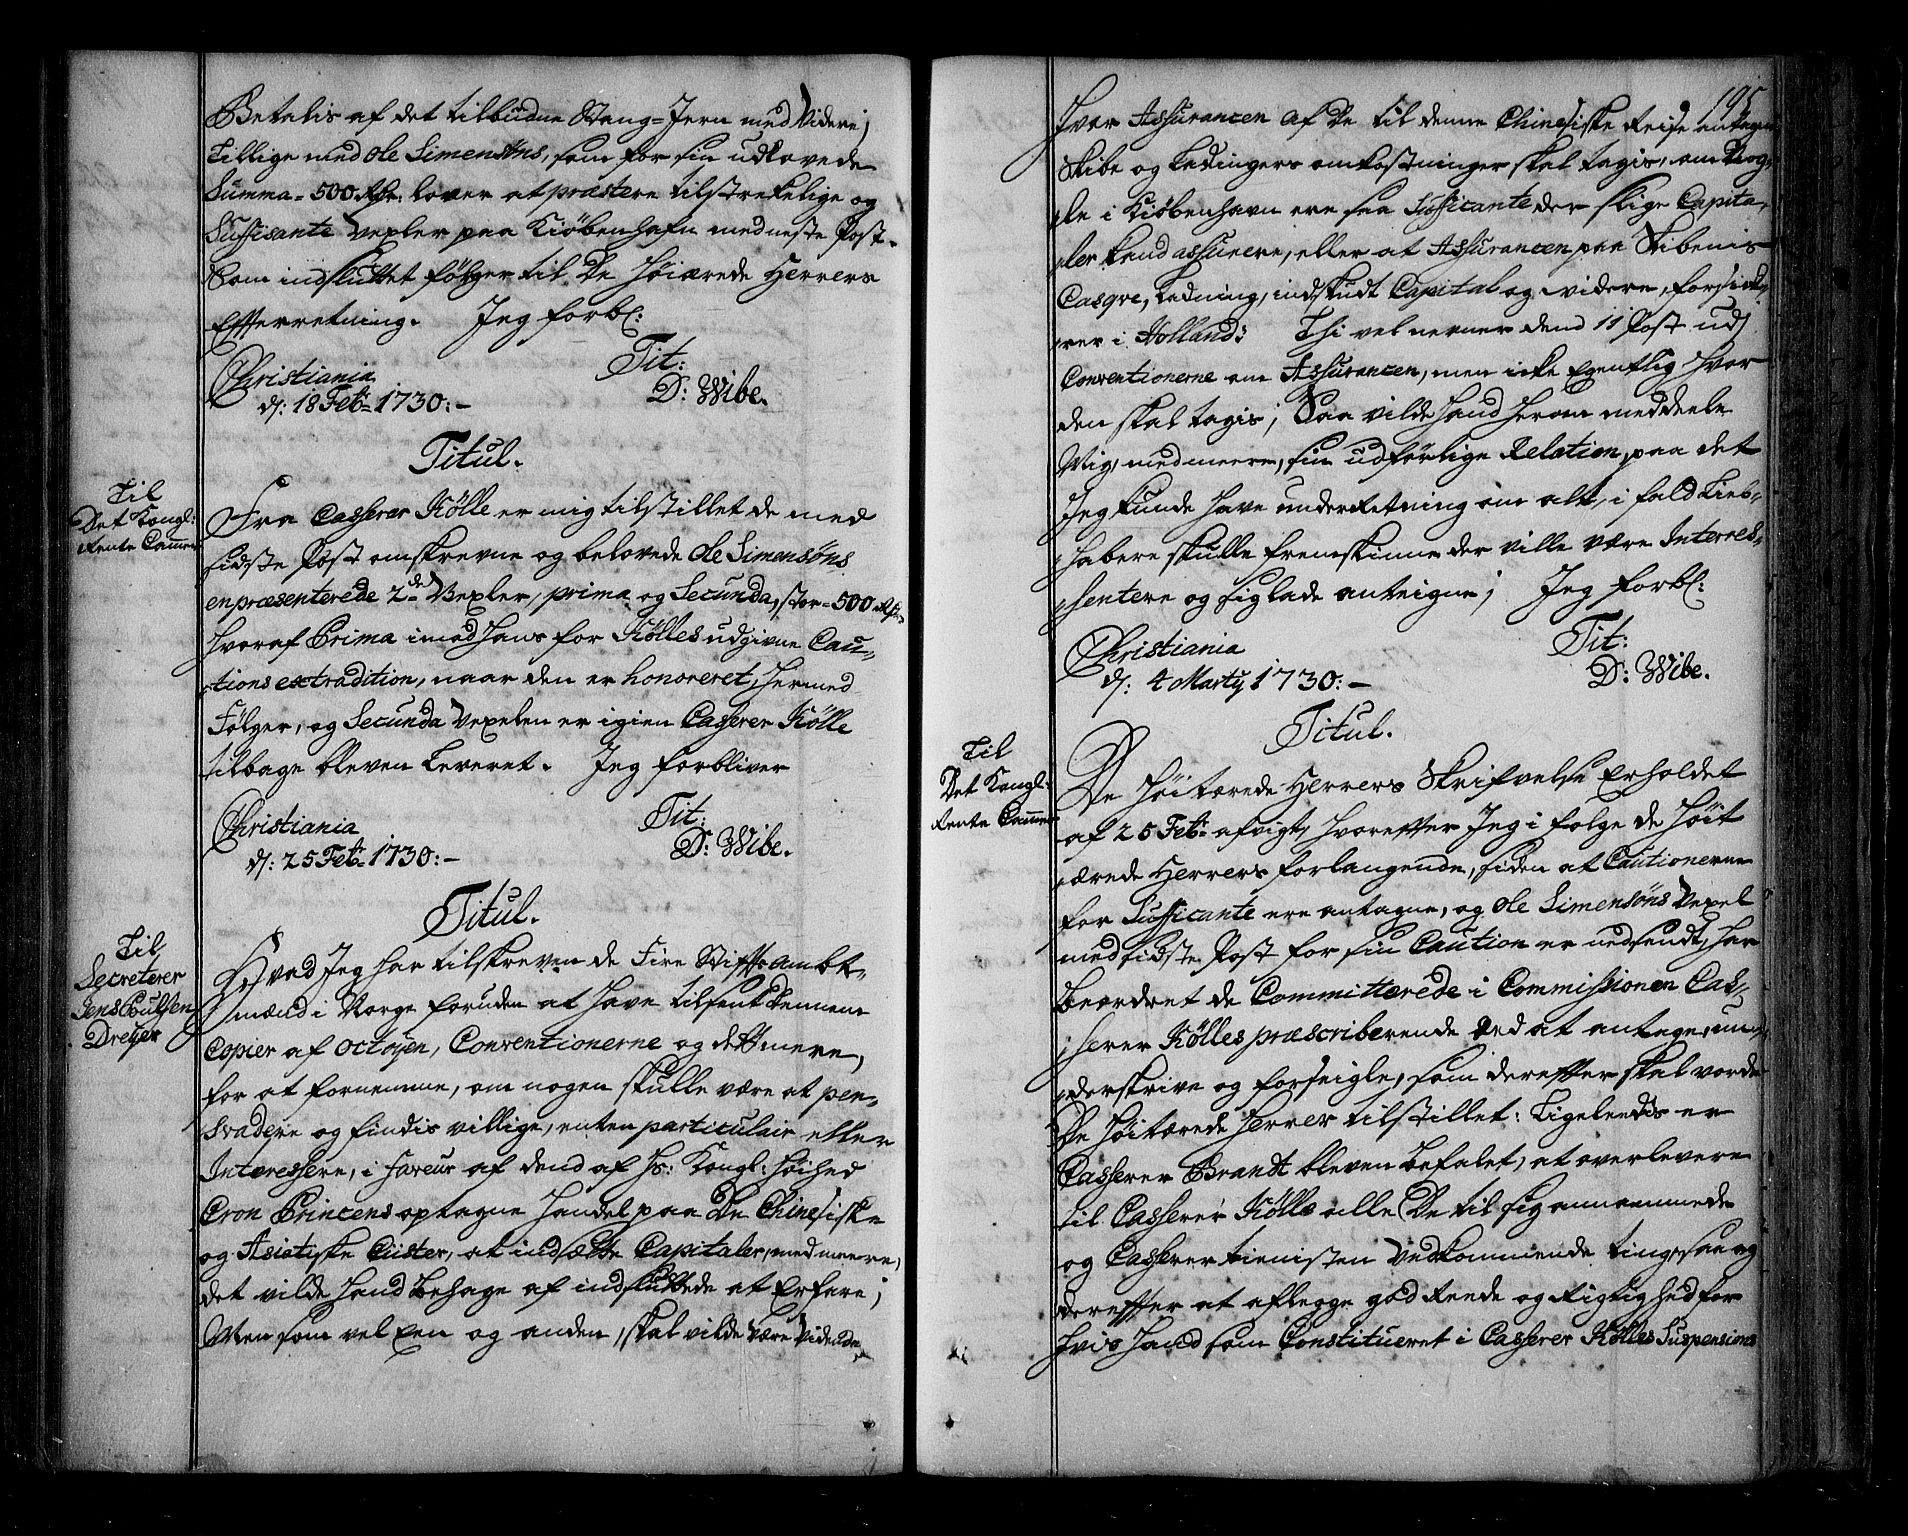 Betalis af det tilbudne Stang-Jern med Videre,
Tillige med Ole Simensøns, som for sin udlovede
Summa = 500 Rdr: lover at præstere tilstrekelige og
Suffisante Vexler paa Kiøbenhafn med neste Post.
Som indsluttet følger til De Høiærede Herrers
Efterretning. Jeg forbl:
Christiania Tit:
d: 18 Febr 1730:- D: Wibe.
Titul.
Til
Det Kongl:
Rente Cammer
Fra Casserer Kölle er mig tilstillet de med
sidste Post omskrevne og belovede Ole Simensøns
en præsenterede 2de Vexler, prima og Secunda, stor = 500 Rdr
hvoraf Prima imod hans for Kölles udgivne Cau-
tions extradition, naar den er honoreret, hermed
Følger, og Secunda Vexelen er igien Casserer Kölle
tilbage bleven Leveret. Jeg forbliver
Christiania Tit:
d: 25 Febr 1730:- D: Wibe.
Titul.
Til
Secreterer
Jens Poulsen
Dreyer
Hvad Jeg har tilskreven de Fire Stiftsambt-
mænd i Norge foruden at have tilsent dennem
Copier af Octoyen, Conventionerne og dets mere,
for at fornemme, om nogen skulle være at per-
svadere og findis villige, enten particulair eller
Interessere, i faveur af dend af Hs: Kongl: Høihed
Cron Princens optagne Handel paa De Chinesiske
og Asiatiske Cüster, at indsætte Capitaler, med meere,
det vilde Hand Behage af indsluttede at Erfare;
Men som vel Een og anden, skal vilde være Vidende,
195
Hvor Assurancen af De til denne Chinesiske Reise antagne
Skibe og Ladingers omkostninger skal tagis, om Nog-
le i Kiøbenhavn ere saa Sufficante der slige Capita-
ler kand assurere, eller at Assurancen paa Skibenis
Casqve, Ladning, indskudt Capital og videre, forsick-
rer i Holland; Thi vel nevner dend 11 Post udj
Conventionerne om Assurancen, men icke Egentlig hvor
den skal tagis; Saa vilde Hand herom meddeele
Mig, med meere, sin udførlige Relation, paa det
Jeg kunde have underRetning om alt, i fald Lieb-
habere skulle fremskinne der ville være Interres-
sentere og siglade anteigne; Jeg forbl:
Christiania Tit:
d: 4 Marty 1730:- D: Wibe.
Titul.
Til
Det Kongl:
Rente Cammer
De Høitærede Herrers Skrifvelse Erholdet
af 25 Febr afvigt, hvorefter Jeg i følge de Høit
ærede Herrers forlangende, siden at Cautionerne
for Sufficante ere antagne, og Ole Simensøns Vexel
med sidste Post for sin Caution er nedsendt, har
beordret de Committerede i Commissionen Cas-
serer Kölles præscriberende Eed at antage, un-
derskrive og forseigle, som derefter skal vorde
De Høitærede Herrer tilstillet: Ligeleedis er
Casserer Brandt bleven befalet, at overlevere
til Casserer Kölle alle De til sig annammede
og Casserer tienisten Vedkommende ting, saa og
derefter at aflegge god Rede og Rigtighed for
hvis Hand som Constitueret i Casserer Kölles Suspensions